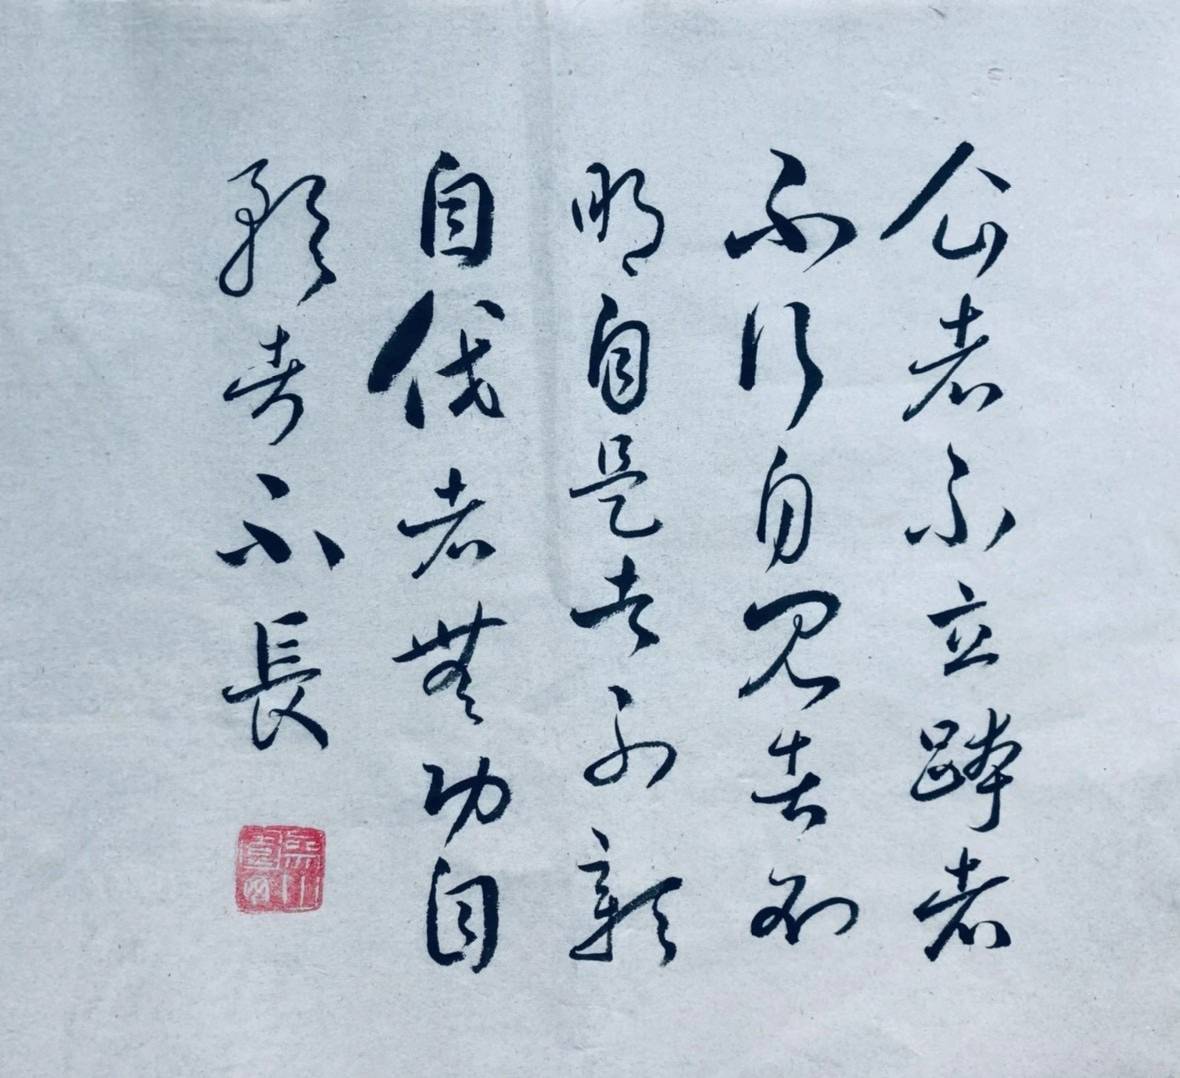 企者不立跨者
不行自見者不
明自是者不彰
自伐者無功自
矜者不長